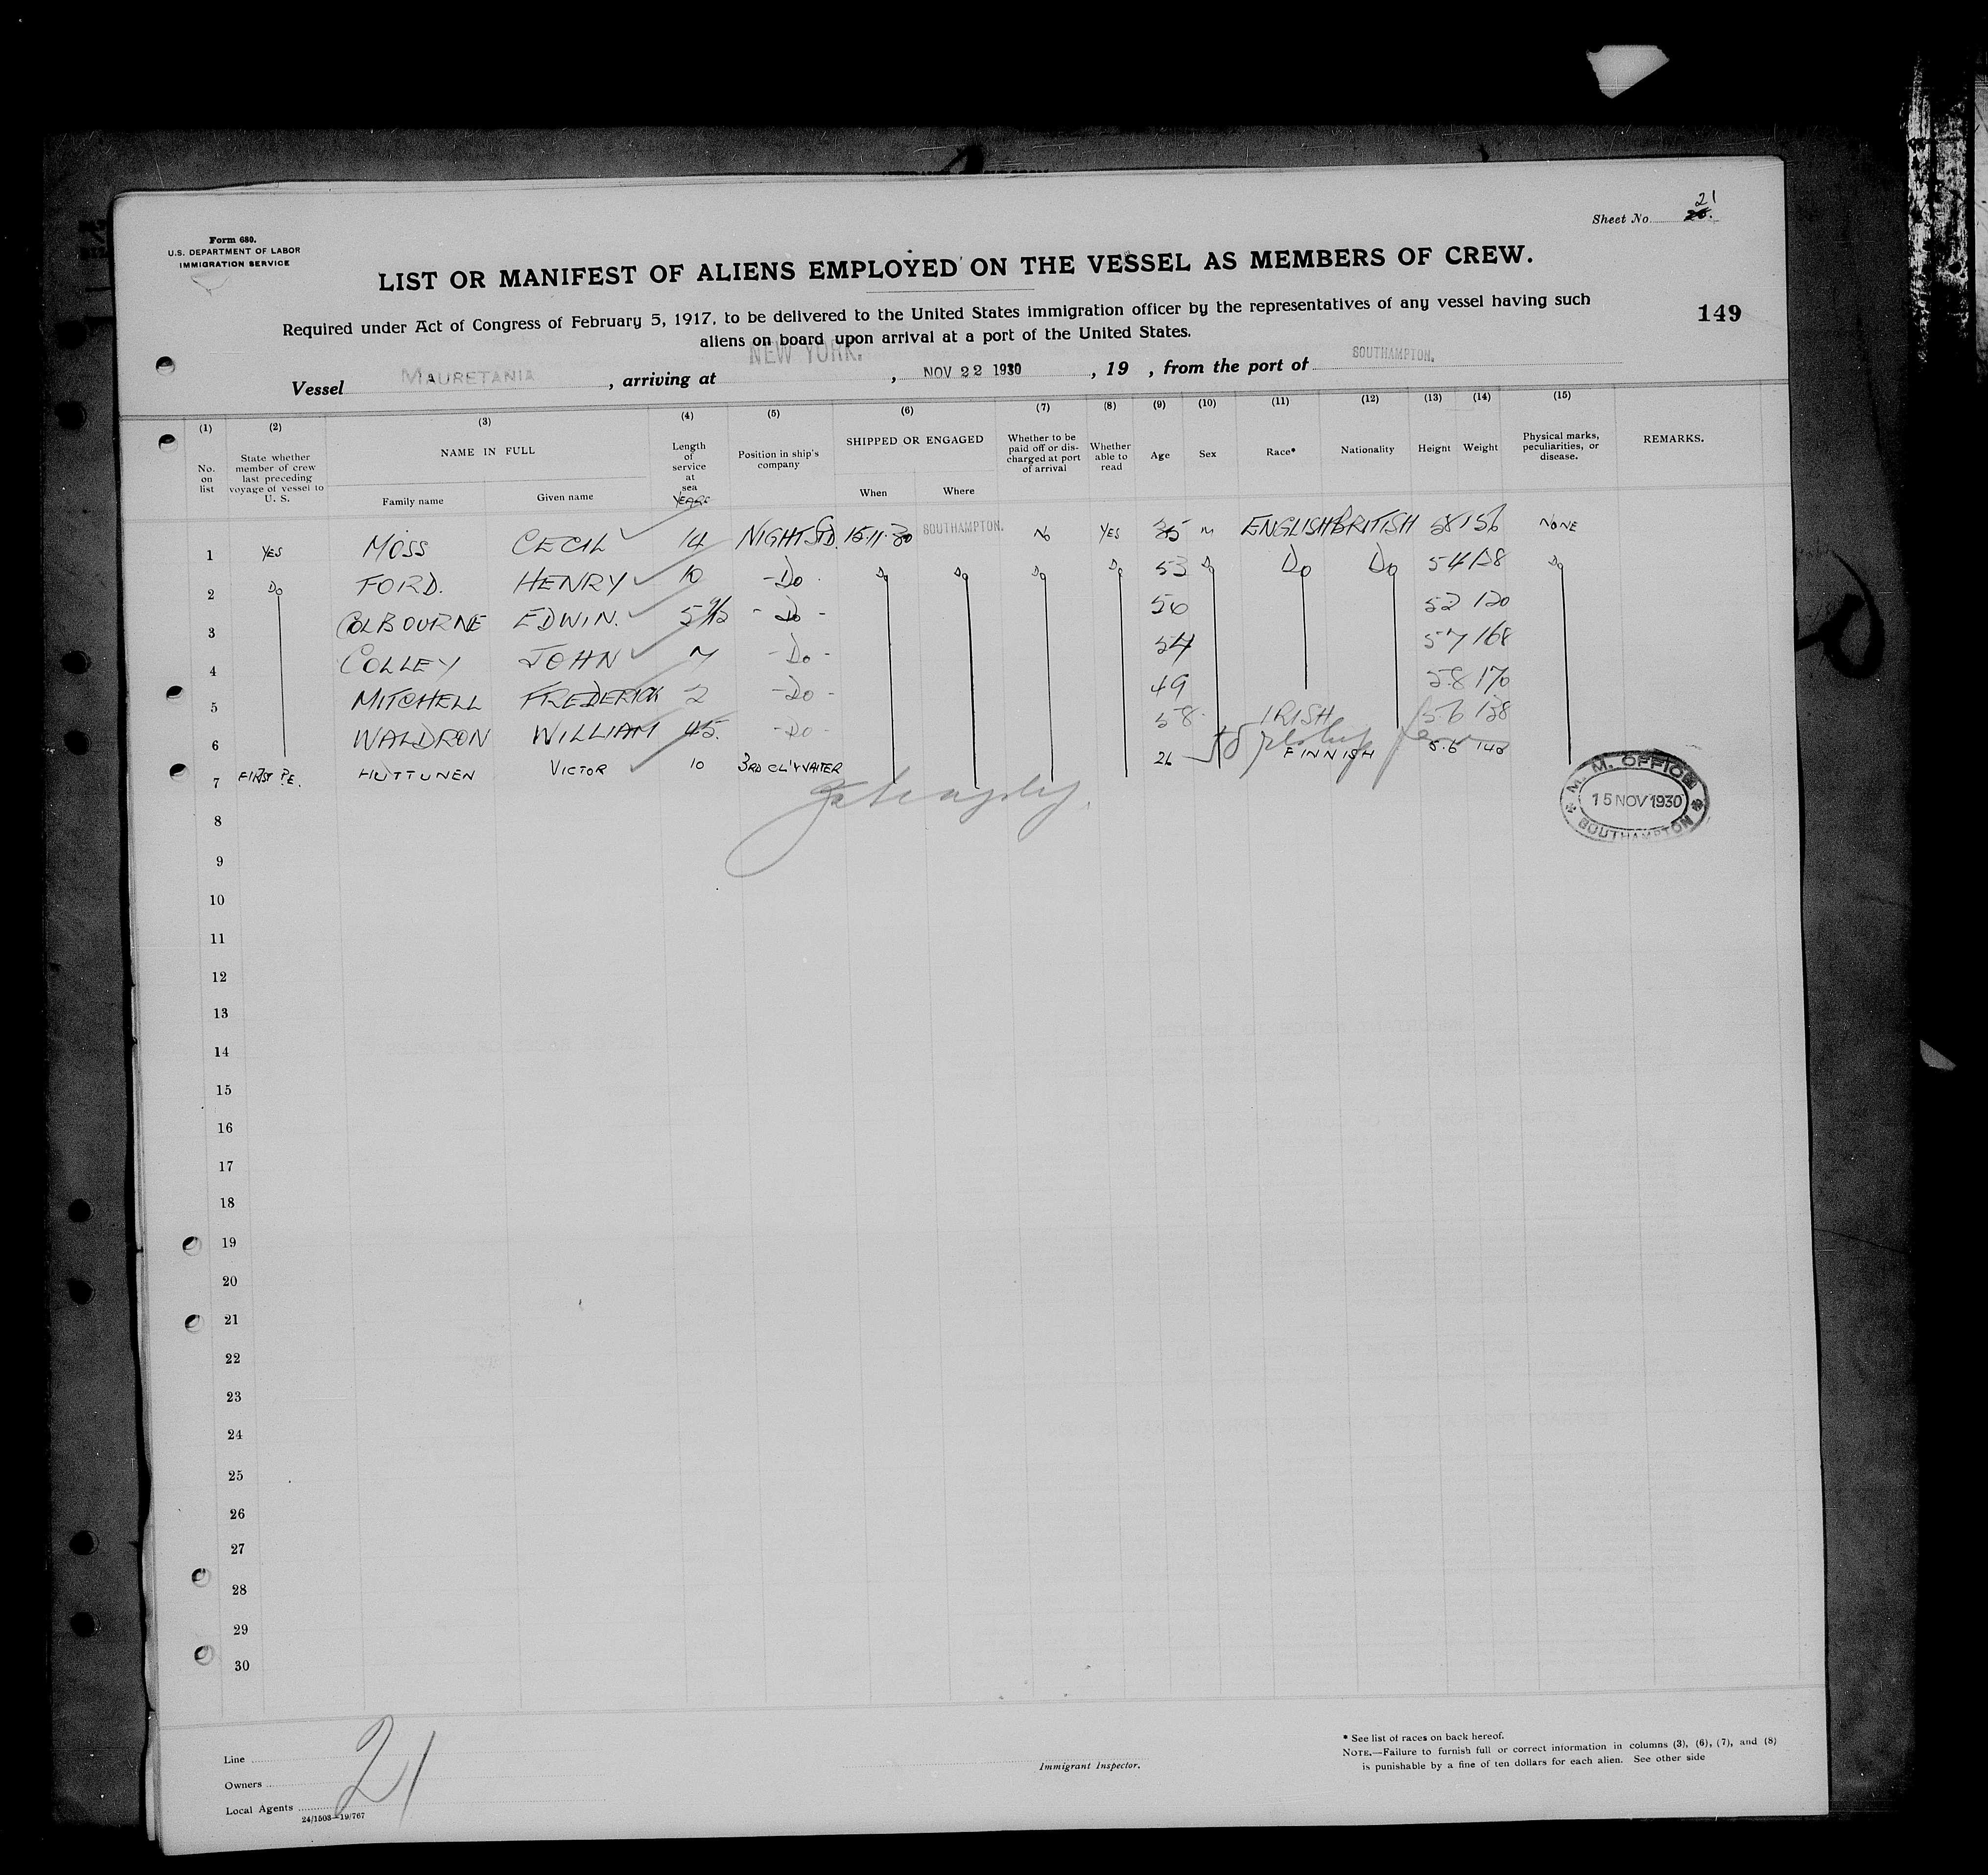 Sheet No. 21
Form 680.
U.S. DEPARTMENT OF LABOR
IMMIGRATION SERVICE
LIST OR MANIFEST OF ALIENS EMPLOYED ON THE VESSEL AS MEMBERS OF CREW.
149
Required under Act of Congress of February 5, 1917, to be delivered to the United States immigration officer by the representatives of any vessel having such
aliens on board upon arrival at a port of the United States.
Vessel MAURETANIA, arriving at NEW YORK., NOV 22 1930, 19 , from the port of SOUTHAMPTON.
(1) (2) (3) (4) (5) (6) (7) (8) (9) (10) (11) (12) (13) (14) (15)
No. on list
State whether member of crew last preceding voyage of vessel to U. S.
NAME IN FULL
Family name
Given name
Length of service at sea
YEARS
Position in ship's company
SHIPPED OR ENGAGED
When
Where
Whether to be paid off or discharged at port of arrival
Whether able to read
Age
Sex
Race*
Nationality
Height
Weight
Physical marks, peculiarities, or disease.
REMARKS.
1 YES MOSS CECIL 14 NIGHT STD. 15.11.30 SOUTHAMPTON. No YES 35 m ENGLISH BRITISH 58 156 NONE
2 Do FORD. HENRY 10 -Do. Do Do Do Do 53 Do Do Do 54 128 Do
3 COLBOURNE EDWIN. -Do- 56 52 120
4 COLLEY JOHN 7 -Do- 54 57 168
5 MITCHELL FREDERICK 2 -Do- 49 5.8 170
6 WALDRON WILLIAM 45. -Do- 58 IRISH 5.6 138
7 FIRST HUTTUNEN VICTOR 10 3RD CL WAITER 26 FINNISH 5.6 140
8
9
10
11
12
13
14
15
16
17
18
19
20
21
22
23
24
25
26
27
28
29
30
M. M. OFFICE
15 NOV 1930
SOUTHAMPTON
21
Line
Owners
Local Agents
24/1503—19/767
Immigrant Inspector.
* See list of races on back hereof.
NOTE.—Failure to furnish full or correct information in columns (3), (6), (7), and (8)
is punishable by a fine of ten dollars for each alien. See other side